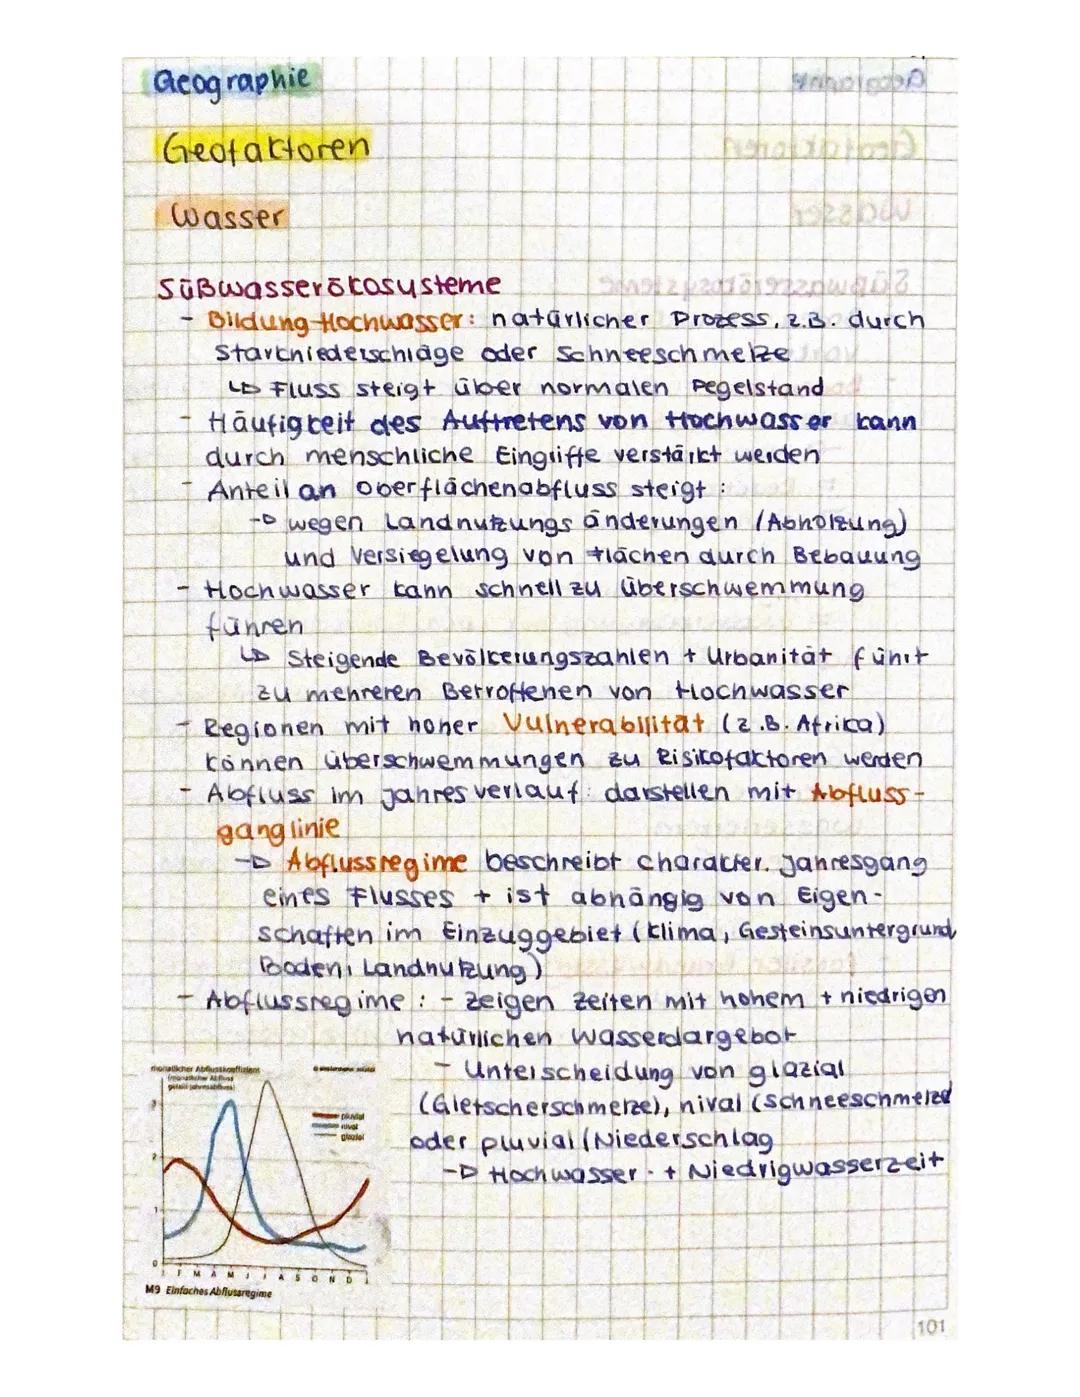 Geographie
Geofaktoren
Wasser
Süßwasserökosysteme
- Bildung Hochwasser: natürlicher Prozess, z.B. durch
Starkniederschläge oder Schneeschmelze
↳ Fluss steigt über normalen Pegelstand
- Häufigkeit des Auftretens von Hochwasser kann
durch menschliche Eingriffe verstärkt werden
- Anteil an Oberflächenabfluss steigt:
→ wegen Landnutzungsänderungen (Abholzung)
und Versiegelung von Flächen durch Bebauung
- Hochwasser kann schnell zu Überschwemmung
führen
↳ Steigende Bevölkerungszahlen + Urbanität führt
zu mehreren Betroffenen von Hochwasser
- Regionen mit hoher Vulnerabilität (z.B. Afrika)
können Überschwemmungen zu Risikofaktoren werden
- Abfluss im Jahresverlauf: darstellen mit Abfluss-
ganglinie
→ Abflussregime beschreibt charakter. Jahresgang
eines Flusses + ist abhängig von Eigen-
schaften im Einzuggebiet (Klima, Gesteinsuntergrund
Boden, Landnutzung)
- Abflussregime: - zeigen Zeiten mit hohem + niedrigen
natürlichen Wasserdargebot
- Unterscheidung von glazial
(Gletscherschmelze), nival (Schneeschmelze
oder pluvial (Niederschlag
→ Hochwasser- + Niedrigwasserzeit
monatlicher Abflusskoeffizient
(monatlicher Abfluss
geteilt Jahresabfluss)
pluvial
nival
glazial
3
2
1
0
J F M A M J J A S O N D J
M9 Einfaches Abflussregime
101